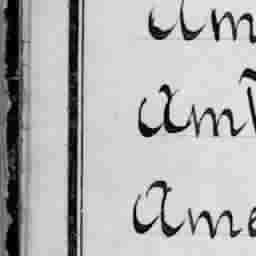 Am
Am
Ame